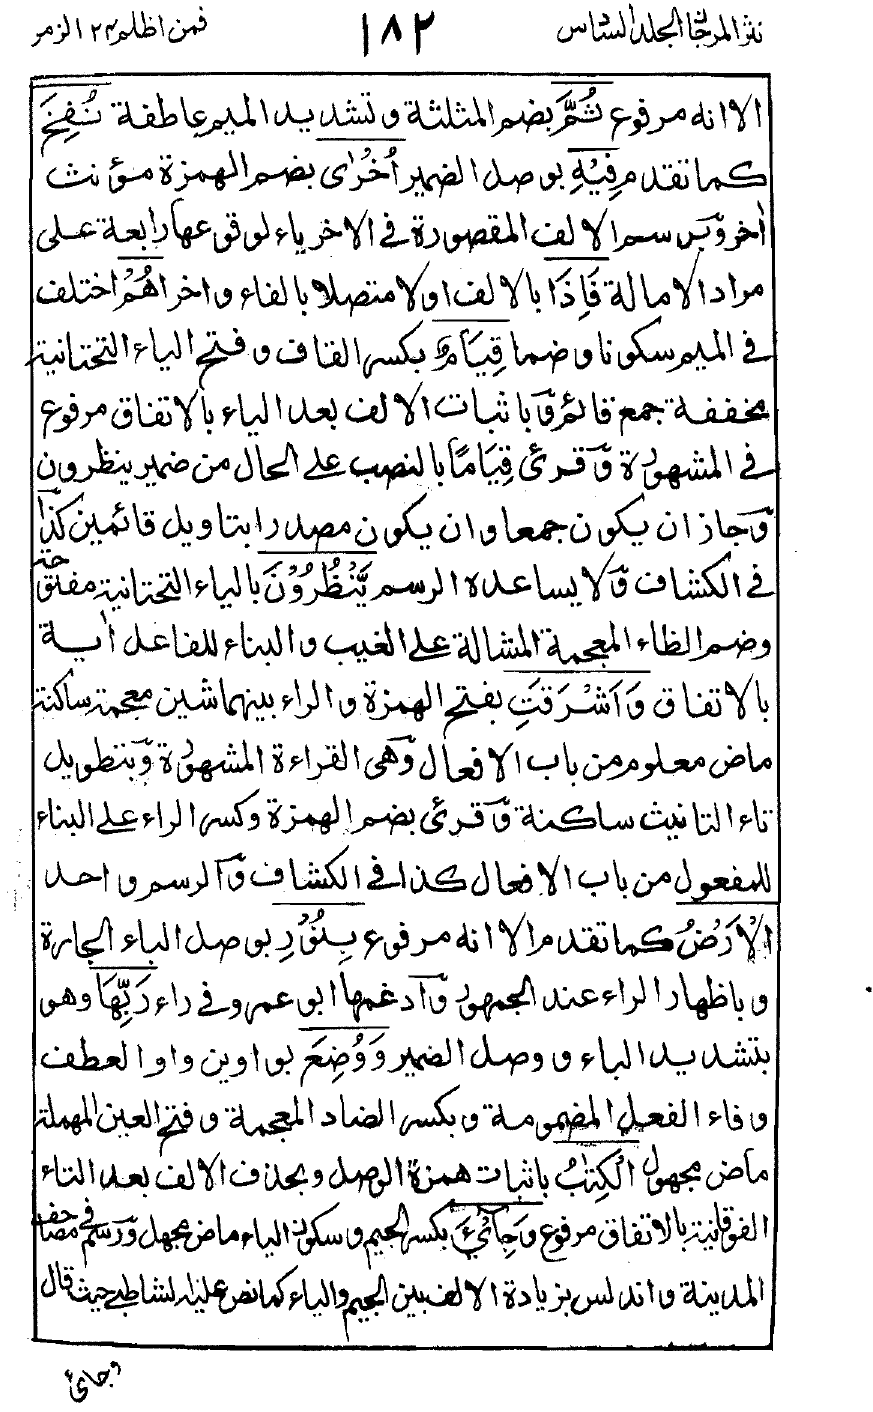 نثر المرجان الجلد السادس ١٨٢ فمن اظلم ٢٤ الزمر
الا انه مرفوع ثُمَّ بضم المثلثة وتشديد الميم عاطفة نُفِخَ
كما تقدم فِيْهِ بوصل الضمير اُخْرٰى بضم الهمزة مؤنث
اٰخر وّبرسم الالف المقصورة في الاخر ياء لوقوعها رابعة على
مراد الامالة فَاِذَا بالالف اولا متصلا بالفاء واخرا هُمْ اختلف
في الميم سكونا وضما قِيَامٌ بكسر القاف وفتح الياء التحتانية
مخففة جمع قائم وّباثبات الالف بعد الياء بالاتفاق مرفوع
في المشهورة وّقرئ قِيَامًا بالنصب على الحال من ضمير ينظرون
وّجاز ان يكون جمعا وان يكون مصدرا بتاويل قائمين كذا
في الكشاف وّلا يساعده الرسم يَّنْظُرُوْنَ بالياء التحتانية مفتوحة
وضم الظاء المعجمة المشالة على الغيب والبناء للفاعل اٰية
بالاتفاق وَاَشْرَقَتِ بفتح الهمزة والراء بينهما شين معجمة ساكنة
ماض معلوم من باب الافعال وّهى القراءة المشهورة وّبتطويل
تاء التانيث ساكنة وّقرئ بضم الهمزة وكسر الراء على البناء
للمفعول من باب الافعال كذا في الكشاف وّالرسم واحد
الْاَرْضُ كما تقدم الا انه مرفوع بِنُوْرِ بوصل الباء الجارة
وباظهار الراء عند الجمهور وّادغمها ابو عمرو في راء رَبِّهَا وهو
بتشديد الباء ووصل الضمير وَوُضِعَ بواوين واو العطف
وفاء الفعل المضمومة وبكسر الضاد المعجمة وفتح العين المهملة
ماض مجهول الْكِتٰبُ باثبات همزة الوصل وبحذف الالف بعد التاء
الفوقانية بالاتفاق مرفوع وَجِائْيءَ بكسر الجيم وسكون الياء ماض مجهول وّرسم في مصاحف
المدينة واندلس بزيادة الالف بين الجيم والياء كما نص عليه الشاطبي حيث قال
وجائ